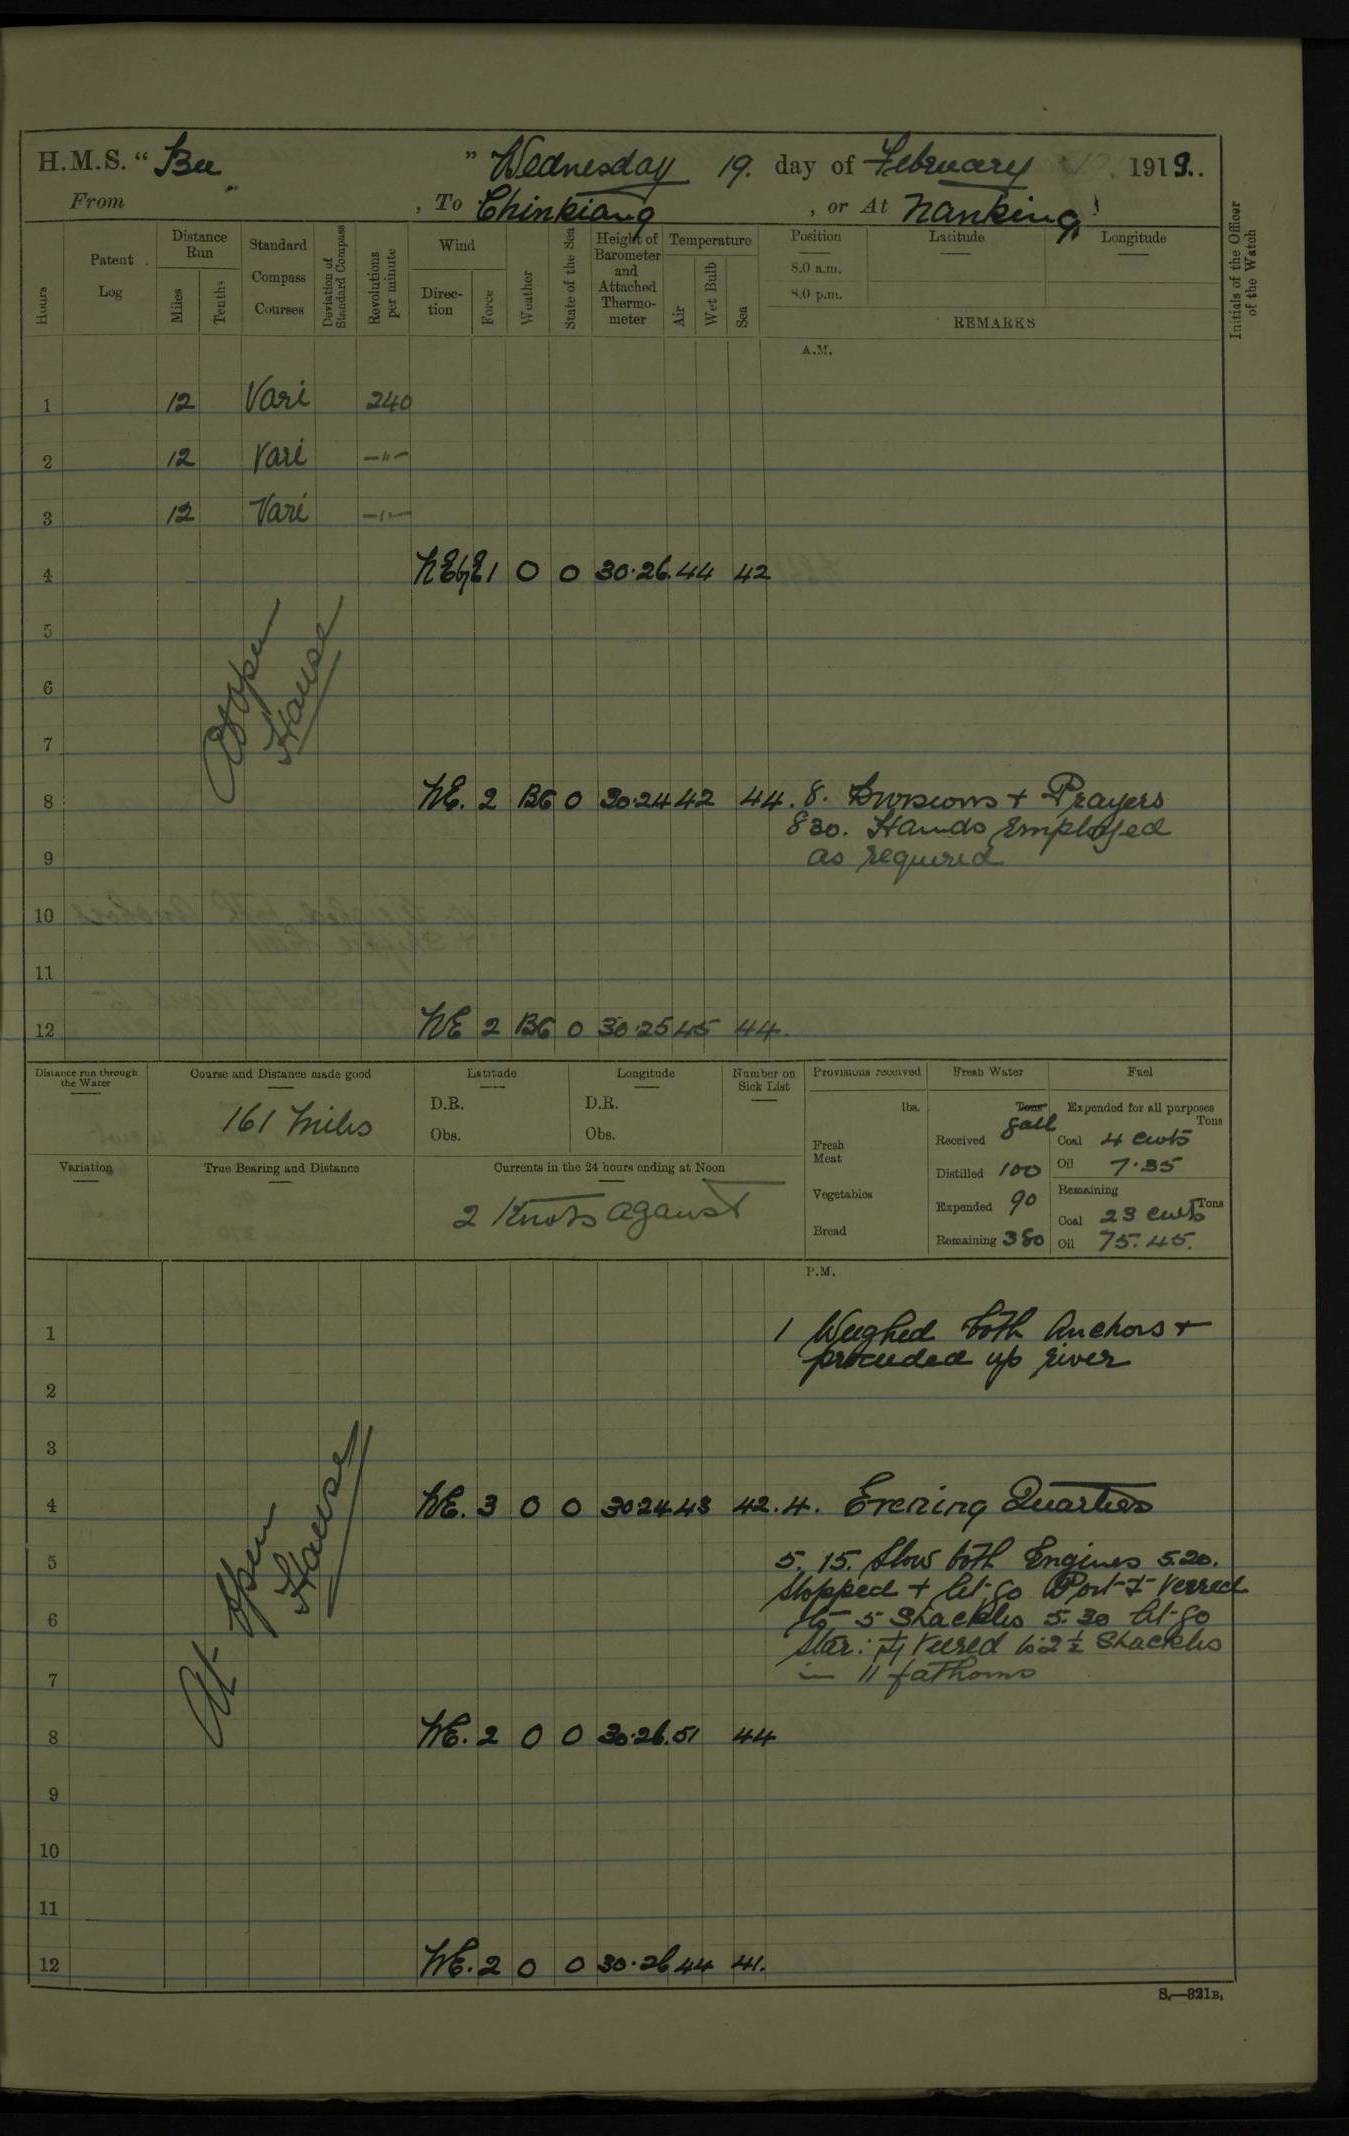 H.M.S. "Bee" Wednesday 19. day of February 1919.
From , To Chinkiang , or At Nanking
Hours
Patent Log
Distance Run
Miles
Tenths
Standard Compass Courses
Deviation of Standard Compass
Revolutions per minute
Wind
Direction
Force
Weather
State of the Sea
Height of Barometer and Attached Thermometer
Temperature
Air
Wet Bulb
Sea
Position
8.0 a.m.
8.0 p.m.
Latitude
Longitude
REMARKS
Initials of the Officer of the Watch
A.M.
1 12 Vari 240
2 12 Vari —"—
3 12 Vari —"—
4 NEbyE 1 O O 30.26. 44 42
5
6
7
open
Hause
8 NE. 2 BC O 30.24 42 44. 8. Divisions + Prayers
830. Hands Employed
9 as required
10
11
12 NE 2 BC O 30.25 45 44.
Distance run through the Water
Course and Distance made good
161 Miles
Latitude
D.R.
Obs.
Longitude
D.R.
Obs.
Number on Sick List
Provisions received
lbs.
Fresh Meat
Vegetables
Bread
Fresh Water
Tons
Gall
Received
Distilled 100
Expended 90
Remaining 380
Fuel
Expended for all purposes
Tons
Coal 4 cwts
Oil 7.35
Remaining
Tons
Coal 23 cwts
Oil 75.45.
Variation
True Bearing and Distance
Currents in the 24 hours ending at Noon
2 Knots against
P.M.
1 1 Weighed both Anchors +
proceeded up river
2
3
4 NE. 3 O O 30.24 43 42. 4. Evening Quarters
5 5.15. Slow both Engines 5.20.
Stopped + let go Port + Veered
6 to 5 Shackles 5.30 let go
Star: Veered to 2½ Shackles
7 in 11 fathoms
At open
Hause
8 NE. 2 O O 30.26. 51 44
9
10
11
12 NE. 2 O O 30.26 44 41.
S.—321B.